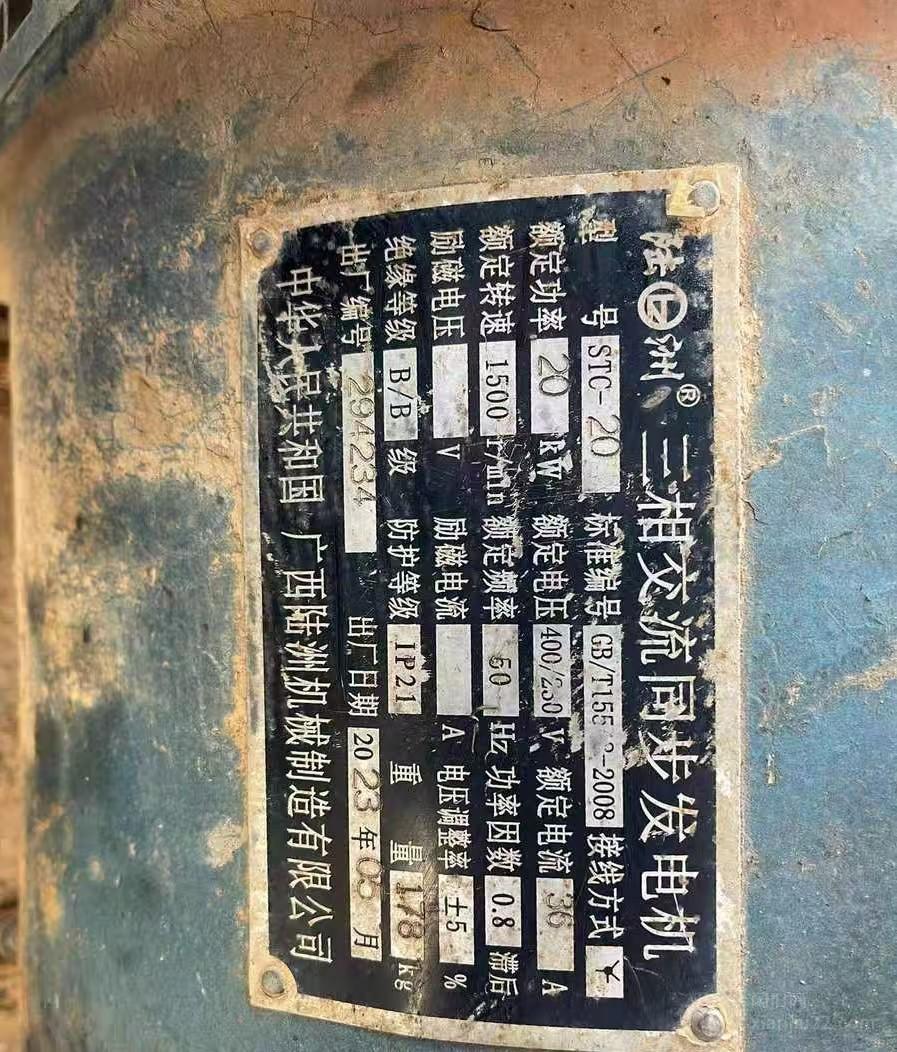 陆洲® 三相交流同步发电机
型号 STC-20 标准编号 GB/T155 2-2008 接线方式 Y
额定功率 20 KW 额定电压 400/230 V 额定电流 36 A
额定转速 1500 r/min 额定频率 50 Hz 功率因数 0.8 滞后
励磁电压 V 励磁电流 A 电压调整率 ±5 %
绝缘等级 B/B 级 防护等级 IP21 重量 178 kg
出厂编号 294234 出厂日期 2023年05月
中华人民共和国 广西陆洲机械制造有限公司